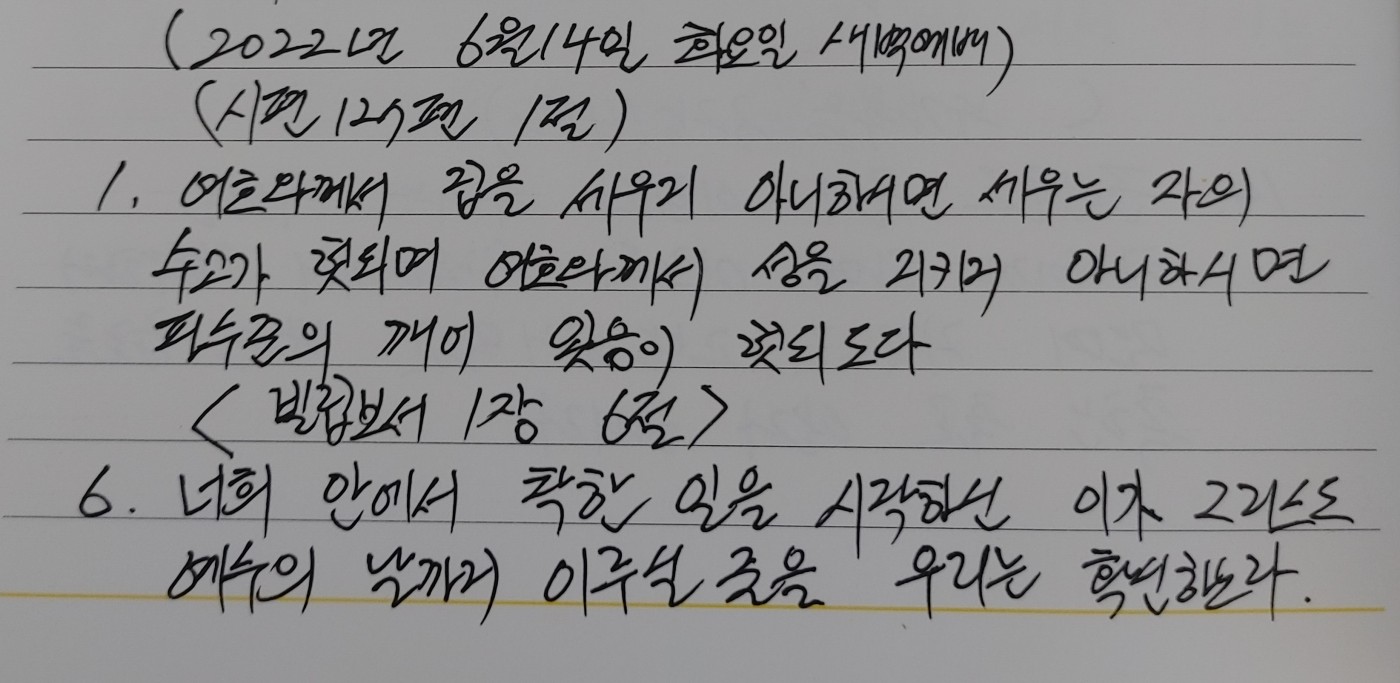 (2022년 6월14일 화요일 새벽예배)
(시편 127편 1절)
1. 여호와께서 집을 세우지 아니하시면 세우는 자의
수고가 헛되며 여호와께서 성을 지키지 아니하시면
파수꾼의 깨어 있음이 헛되도다
<빌립보서 1장 6절>
6. 너희 안에서 착한 일을 시작하신 이가 그리스도
예수의 날까지 이루실 줄을 우리는 확신하노라.